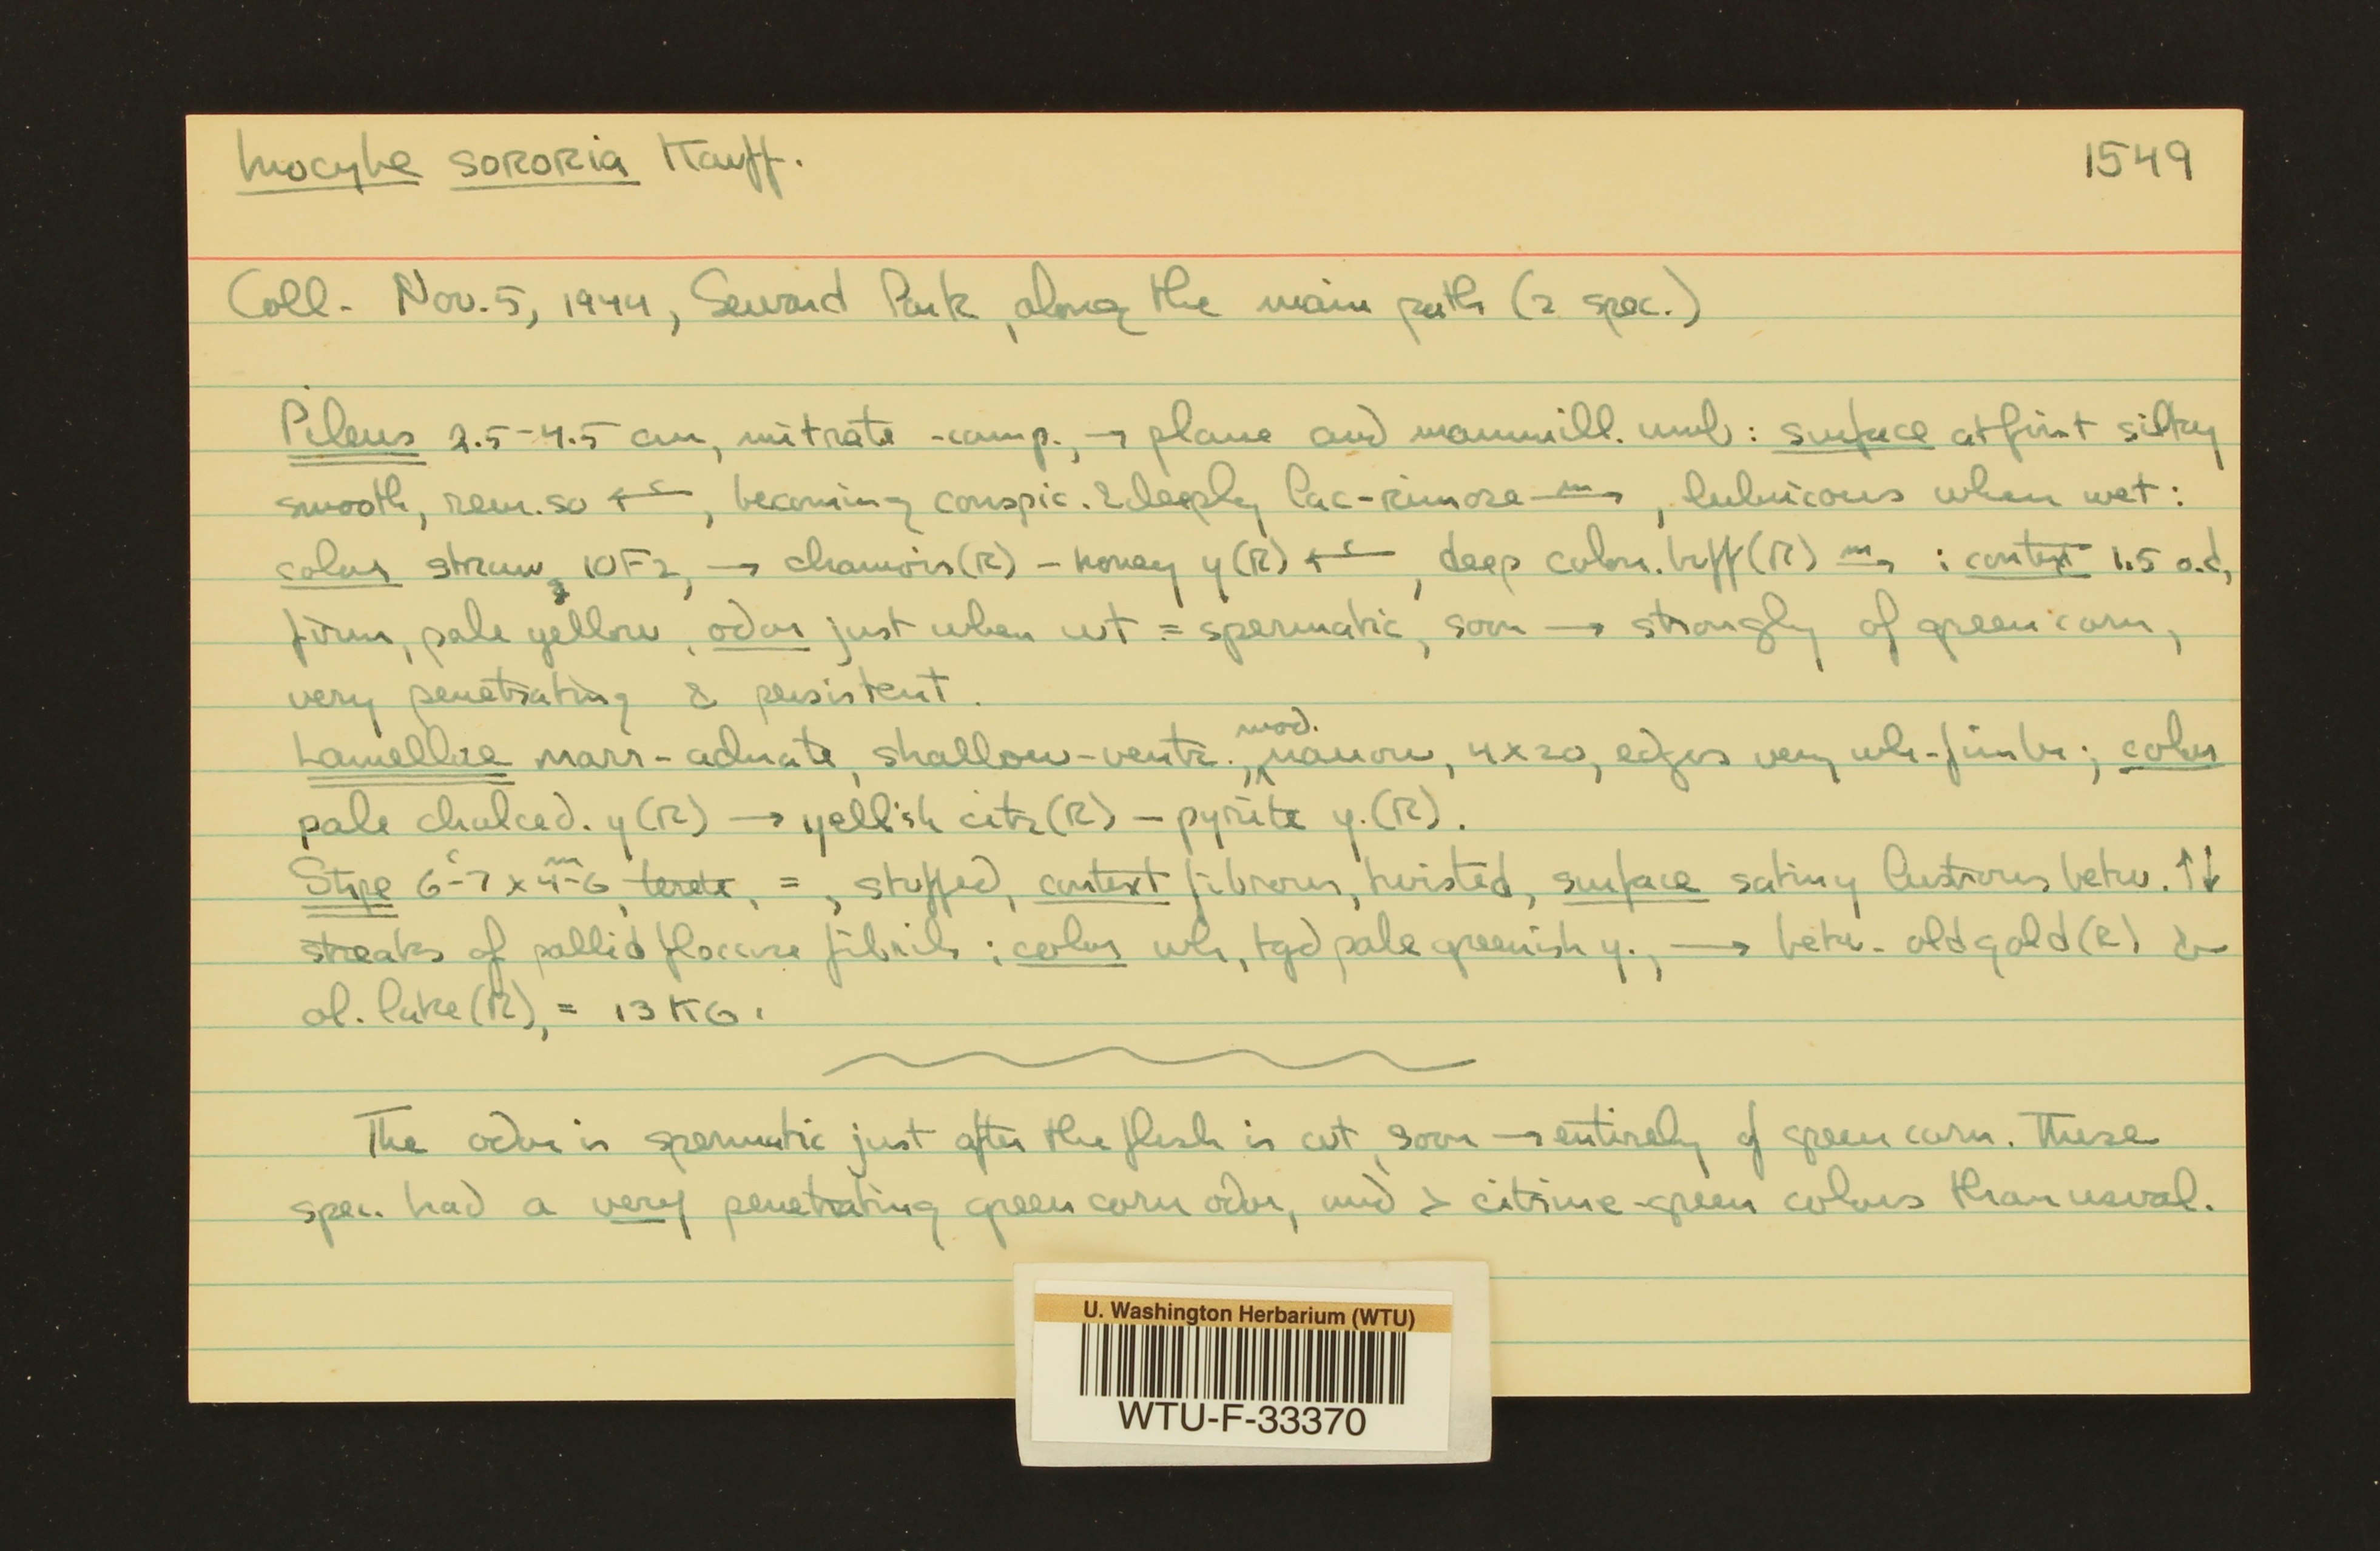 Inocybe sororia Kauff. 1549
Coll. Nov. 5, 1944, Seward Park, along the main path (2 spec.)
Pileus 2.5-4.5 cm, mitrate-camp., → plane and mammill. umb: surface at first silky
smooth, rem. so ←c, becoming conspic. & deeply lac-rimose m→, lubricous when wet:
color straw, 10F2, → chamois (R) - honey y (R) ←c, deep colon. buff (R) m→ : context 1.5 a.d,
firm, pale yellow, odor just when cut = spermatic, soon → strongly of green corn,
very penetrating & persistent.
Lamellae narr-adnate, shallow-ventr., mod. narrow, 4x20, edges very wh-fimbr; color
pale chalced. y (R) → yell'sh citr (R) - pyrite y. (R).
Stipe 6-7 c x 4-6 m, terete, =, stuffed, context fibrous, twisted, surface satiny lustrous betw. ↑↓
streaks of pallid floccose fibrils; color wh, tgd pale greenish y., → betw. old gold (R) &
ol. lake (R), = 13 K6.
The odor is spermatic just after the flesh is cut, soon → entirely of green corn. These
spec. had a very penetrating green corn odor, and > citrine-green colors than usual.
U. Washington Herbarium (WTU)
WTU-F-33370